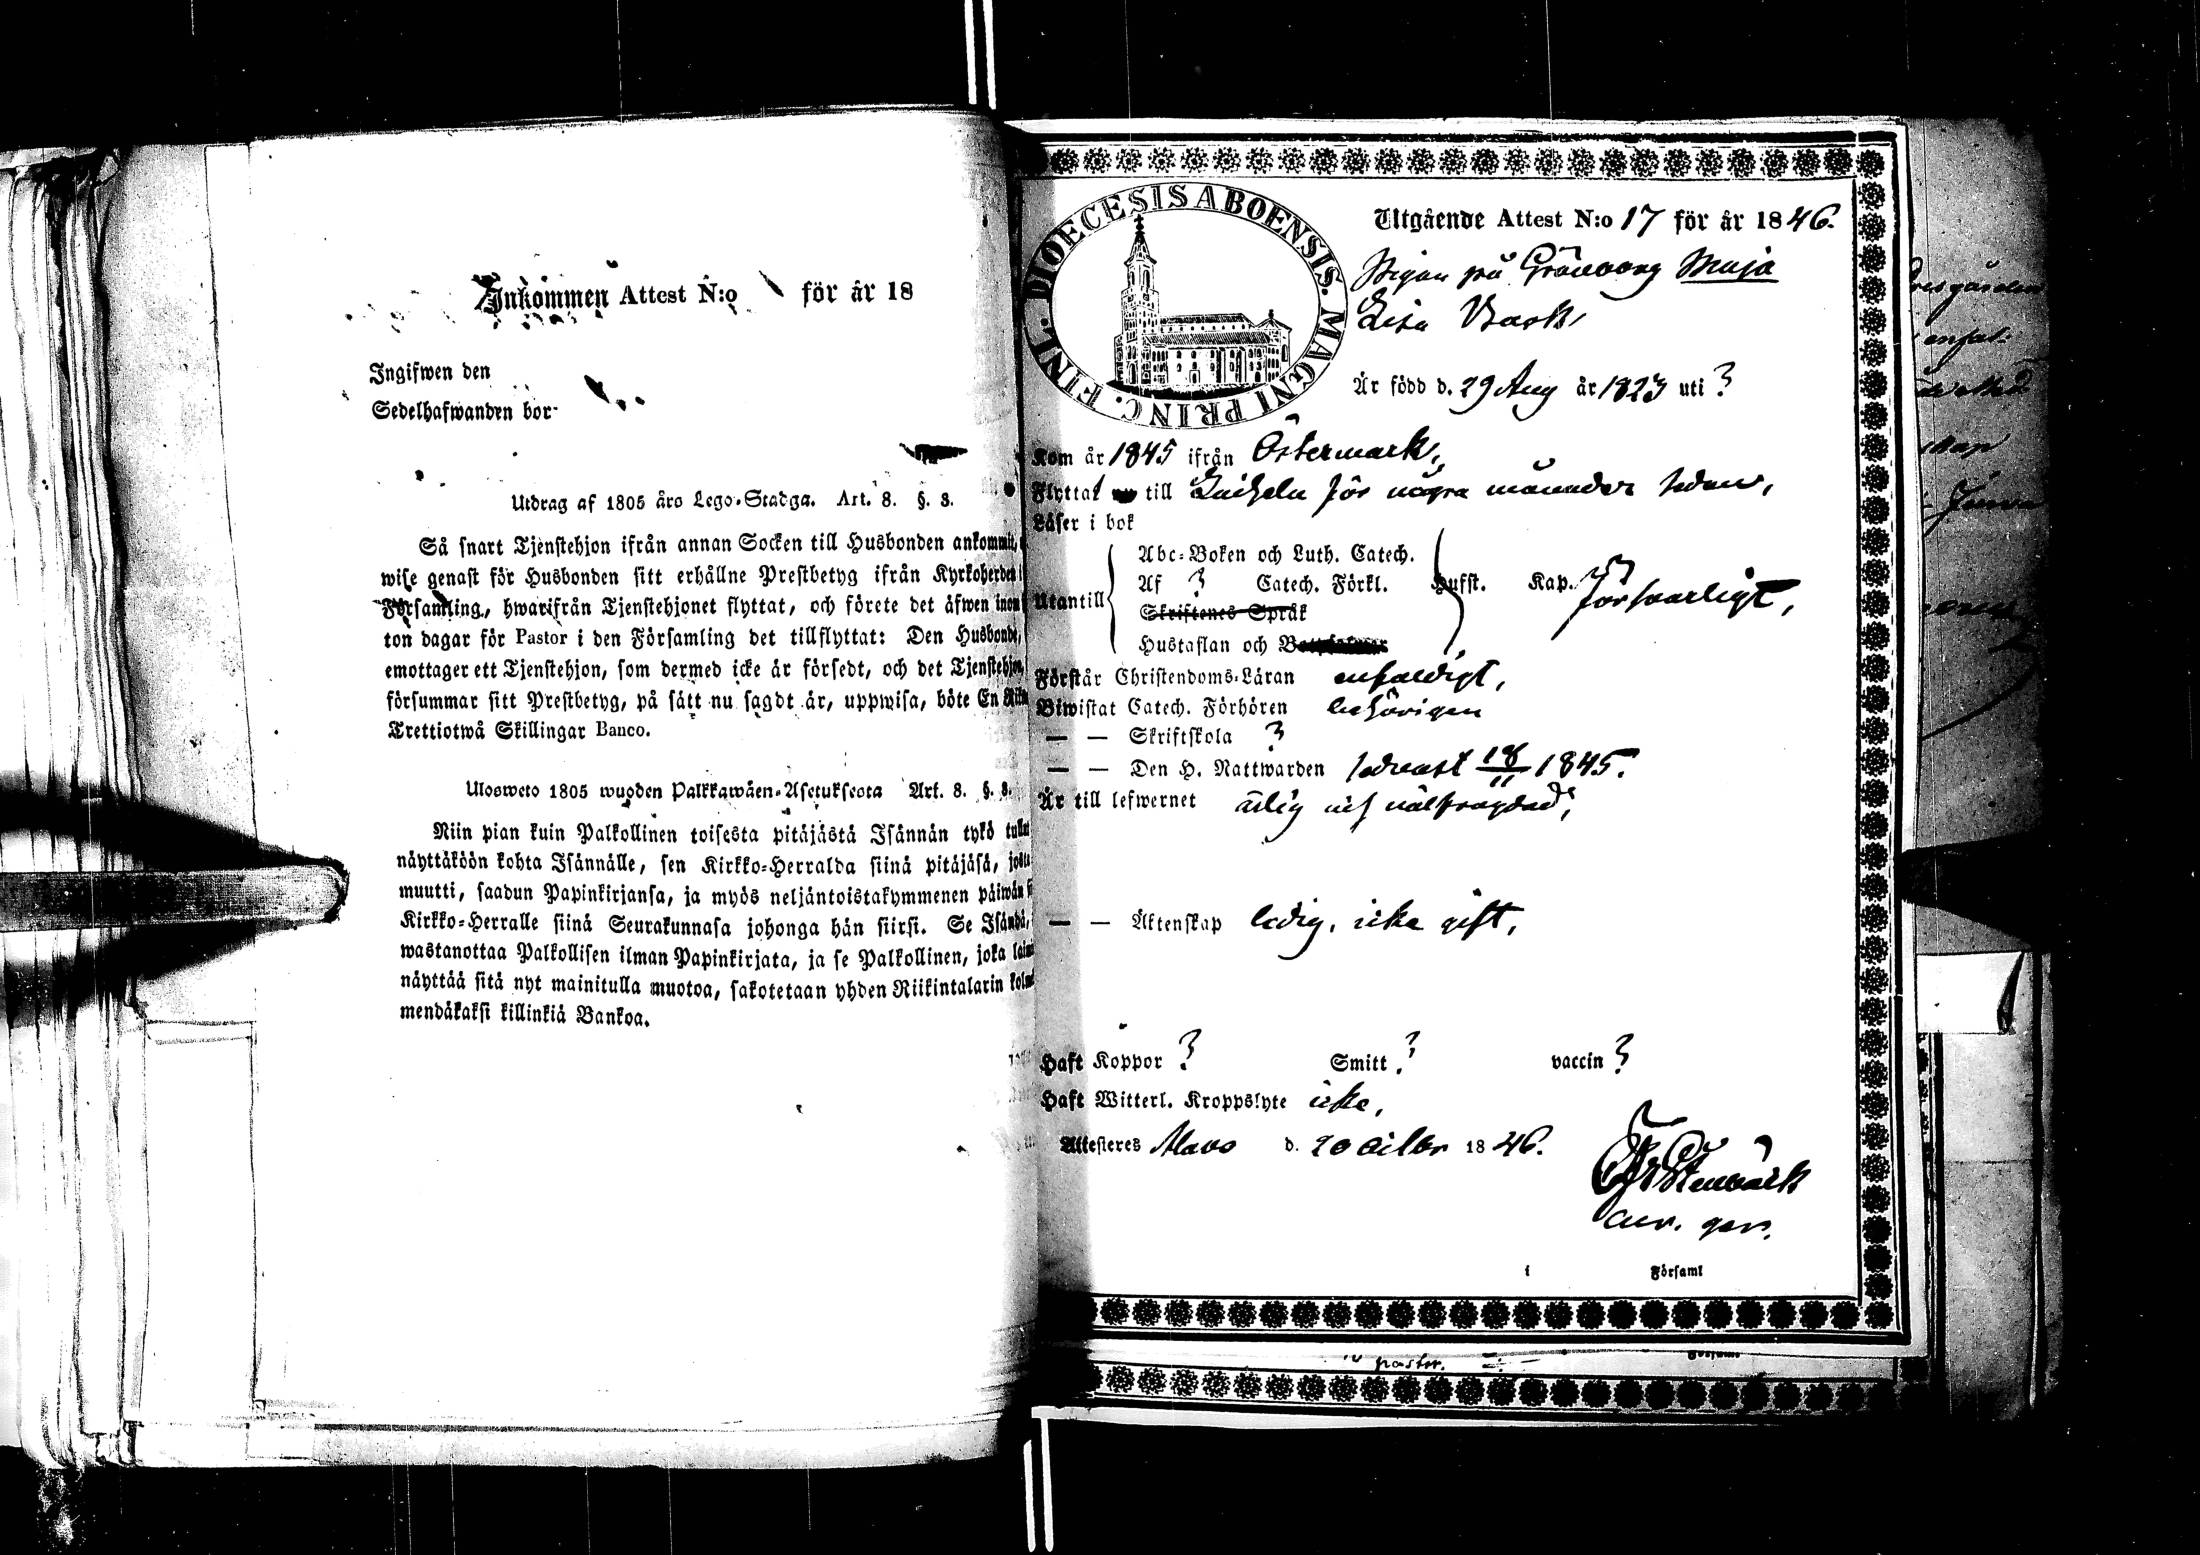 Inkommen Attest N:o för år 18
Ingifwen den
Sedelhafwanden bor-
Utdrag af 1805 års Lego-Stadga. Art. 8. §. 3.
Så snart Tjenstehjon ifrån annan Socken till Husbonden ankommit,
wise genast för Husbonden sitt erhållne Prestbetyg ifrån Kyrkoherden i
Församling, hwarifrån Tjenstehjonet flyttat, och förete det äfwen inom
ton dagar för Pastor i den Församling det tillflyttat: Den Husbonde,
emottager ett Tjenstehjon, som dermed icke är försedt, och det Tjenstehjon,
försummar sitt Prestbetyg, på sätt nu sagdt är, uppwisa, böte En Riks
Trettiotwå Skillingar Banco.
Ulosweto 1805 wuoden Palkkawäen-Asetuksesta Art. 8. §. 3.
Niin pian kuin Palkollinen toisesta pitäjästä Isännän tykö tullut
näyttäköön kohta Isännälle, sen Kirkko-Herralda siinä pitäjäsä, josta
muutti, saadun Papinkirjansa, ja myös neljäntoistakymmenen päiwän si
Kirkko-Herralle siinä Seurakunnasa johonga hän siirsi. Se Isändä,
wastanottaa Palkollisen ilman Papinkirjata, ja se Palkollinen, joka laim
näyttää sitä nyt mainitulla muotoa, sakotetaan yhden Riikintalarin kolme
mendäkaksi killinkiä Bankoa.
DIOECESIS ABOENSIS. MAGNI PRINC. FINL.
Utgående Attest N:o 17 för år 1846.
Pigan på Maja
Lisa Back,
Är född d. 29 Aug år 1823 uti ?
Kom år 1845 ifrån Östermark,
Flyttat till för några månader sedan,
Läser i bok
Abc-Boken och Luth. Catech.
Af ? Catech. Förkl. Hufst. Kap. Försvarligt,
Utantill
Skriftenes Språk
Hustaflan och
Förstår Christendoms-Läran enfaldigt,
Biwistat Catech. Förhören behörigen
— — Skriftskola ?
— — Den H. Nattwarden sednast 18/11 1845.
Är till lefwernet ärlig och välfrägdad,
— — Äktenskap ledig, icke gift,
Haft Koppor ? Smitt ? vaccin ?
Haft Witterl. Kroppslyte icke,
Attesteres Alavo d. 20 1846.
i Församl
pastor.